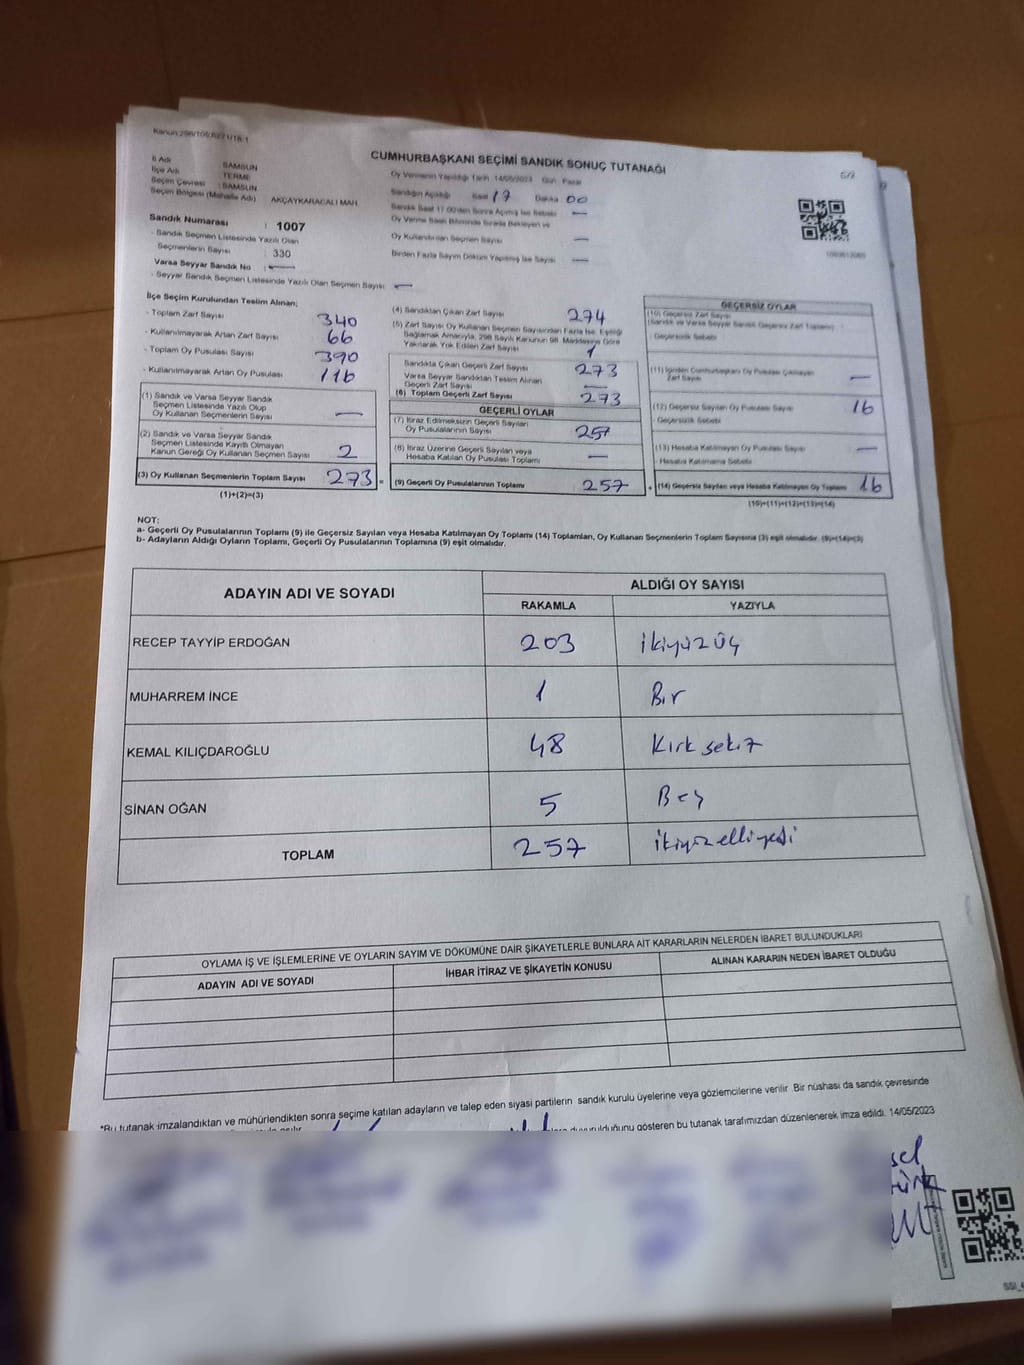 Kanun:298/105,6271/18-1
CUMHURBAŞKANI SEÇİMİ SANDIK SONUÇ TUTANAĞI
İl Adı : SAMSUN
İlçe Adı : TERME
Seçim Çevresi : SAMSUN
Seçim Bölgesi (Mahalle Adı) AKÇAYKARACALI MAH.
Oy Vermenin Yapıldığı Tarih 14/05/2023 Gün Pazar
Sandığın Açıldığı Saat 17 Dakika 00
Sandık Saat 17.00'den Sonra Açılmış İse Sebebi —
Oy Verme Saati Bitiminde Sırada Bekleyen ve
Oy Kullandırılan Seçmen Sayısı —
Birden Fazla Sayım Döküm Yapılmış İse Sayısı —
Sandık Numarası : 1007
- Sandık Seçmen Listesinde Yazılı Olan
Seçmenlerin Sayısı : 330
Varsa Seyyar Sandık No : —
- Seyyar Sandık Seçmen Listesinde Yazılı Olan Seçmen Sayısı : —
İlçe Seçim Kurulundan Teslim Alınan;
- Toplam Zarf Sayısı 340
- Kullanılmayarak Artan Zarf Sayısı 66
- Toplam Oy Pusulası Sayısı 390
- Kullanılmayarak Artan Oy Pusulası 116
(1) Sandık ve Varsa Seyyar Sandık
Seçmen Listesinde Yazılı Olup
Oy Kullanan Seçmenlerin Sayısı —
(2) Sandık ve Varsa Seyyar Sandık
Seçmen Listesinde Kayıtlı Olmayan
Kanun Gereği Oy Kullanan Seçmen Sayısı 2
(3) Oy Kullanan Seçmenlerin Toplam Sayısı 273 =
(1)+(2)=(3)
(4) Sandıktan Çıkan Zarf Sayısı 274
(5) Zarf Sayısı Oy Kullanan Seçmen Sayısından Fazla İse, Eşitliği
Sağlamak Amacıyla, 298 Sayılı Kanunun 98. Maddesine Göre
Yakılarak Yok Edilen Zarf Sayısı 1
Sandıkta Çıkan Geçerli Zarf Sayısı 273
Varsa Seyyar Sandıktan Teslim Alınan
Geçerli Zarf Sayısı —
(6) Toplam Geçerli Zarf Sayısı 273
GEÇERLİ OYLAR
(7) İtiraz Edilmeksizin Geçerli Sayılan
Oy Pusulalarının Sayısı 257
(8) İtiraz Üzerine Geçerli Sayılan veya
Hesaba Katılan Oy Pusulası Toplamı —
(9) Geçerli Oy Pusulalarının Toplamı 257 +
GEÇERSİZ OYLAR
(10) Geçersiz Zarf Sayısı
(Sandık ve Varsa Seyyar Sandık Geçersiz Zarf Toplamı)
- Geçersizlik Sebebi
(11) İçinden Cumhurbaşkanı Oy Pusulası Çıkmayan
Zarf Sayısı —
(12) Geçersiz Sayılan Oy Pusulası Sayısı 16
- Geçersizlik Sebebi
(13) Hesaba Katılmayan Oy Pusulası Sayısı —
Hesaba Katılmama Sebebi
(14) Geçersiz Sayılan veya Hesaba Katılmayan Oy Toplamı 16
(10)+(11)+(12)+(13)=(14)
NOT:
a- Geçerli Oy Pusulalarının Toplamı (9) ile Geçersiz Sayılan veya Hesaba Katılmayan Oy Toplamı (14) Toplamları, Oy Kullanan Seçmenlerin Toplam Sayısına (3) eşit olmalıdır. (9)+(14)=(3)
b- Adayların Aldığı Oyların Toplamı, Geçerli Oy Pusulalarının Toplamına (9) eşit olmalıdır.
ADAYIN ADI VE SOYADI ALDIĞI OY SAYISI
RAKAMLA YAZIYLA
RECEP TAYYİP ERDOĞAN 203 ikiyüzüç
MUHARREM İNCE 1 Bir
KEMAL KILIÇDAROĞLU 48 Kırk sekiz
SİNAN OĞAN 5 Beş
TOPLAM 257 ikiyüzelliyedi
OYLAMA İŞ VE İŞLEMLERİNE VE OYLARIN SAYIM VE DÖKÜMÜNE DAİR ŞİKAYETLERLE BUNLARA AİT KARARLARIN NELERDEN İBARET BULUNDUKLARI
ADAYIN ADI VE SOYADI İHBAR İTİRAZ VE ŞİKAYETİN KONUSU ALINAN KARARIN NEDEN İBARET OLDUĞU
*Bu tutanak imzalandıktan ve mühürlendikten sonra seçime katılan adayların ve talep eden siyasi partilerin sandık kurulu üyelerine veya gözlemcilerine verilir. Bir nüshası da sandık çevresinde
duyurulduğunu gösteren bu tutanak tarafımızdan düzenlenerek imza edildi. 14/05/2023